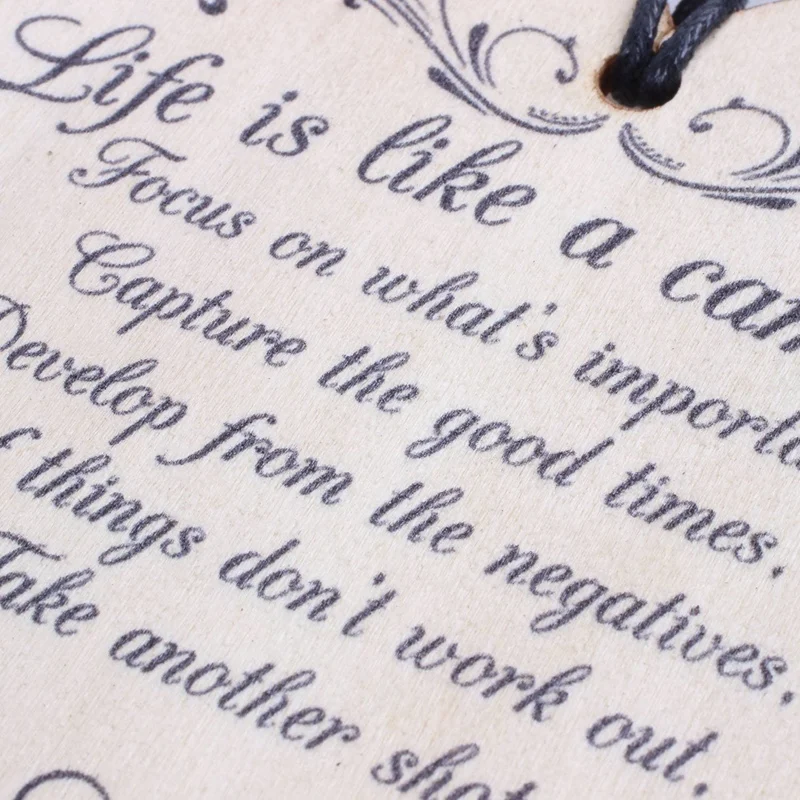 Life is like a cam
Focus on what's importa
Capture the good times.
Develop from the negatives.
f things don't work out.
Take another shot